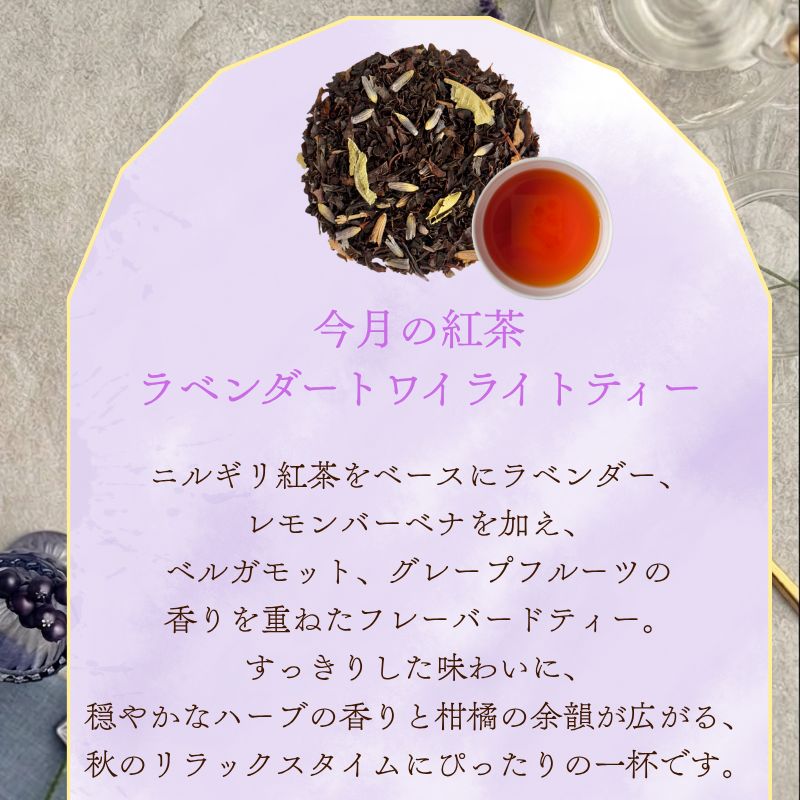 今月の紅茶
ラベンダートワイライトティー
ニルギリ紅茶をベースにラベンダー、
レモンバーベナを加え、
ベルガモット、グレープフルーツの
香りを重ねたフレーバードティー。
すっきりした味わいに、
穏やかなハーブの香りと柑橘の余韻が広がる、
秋のリラックスタイムにぴったりの一杯です。